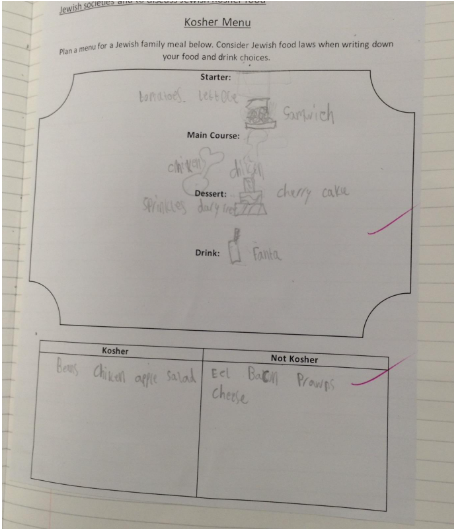 Jewish societies and to discuss Jewish Kosher food
Kosher Menu
Plan a menu for a Jewish family meal below. Consider Jewish food laws when writing down
your food and drink choices.
Starter:
tomatoes lettose
Samwich
Main Course:
chicken
Dessert:
cherry cake
sprinkles
Drink:
fanta
Kosher
Not Kosher
Beens Chiken apple salad
Eel Bacn Prawns
Cheese